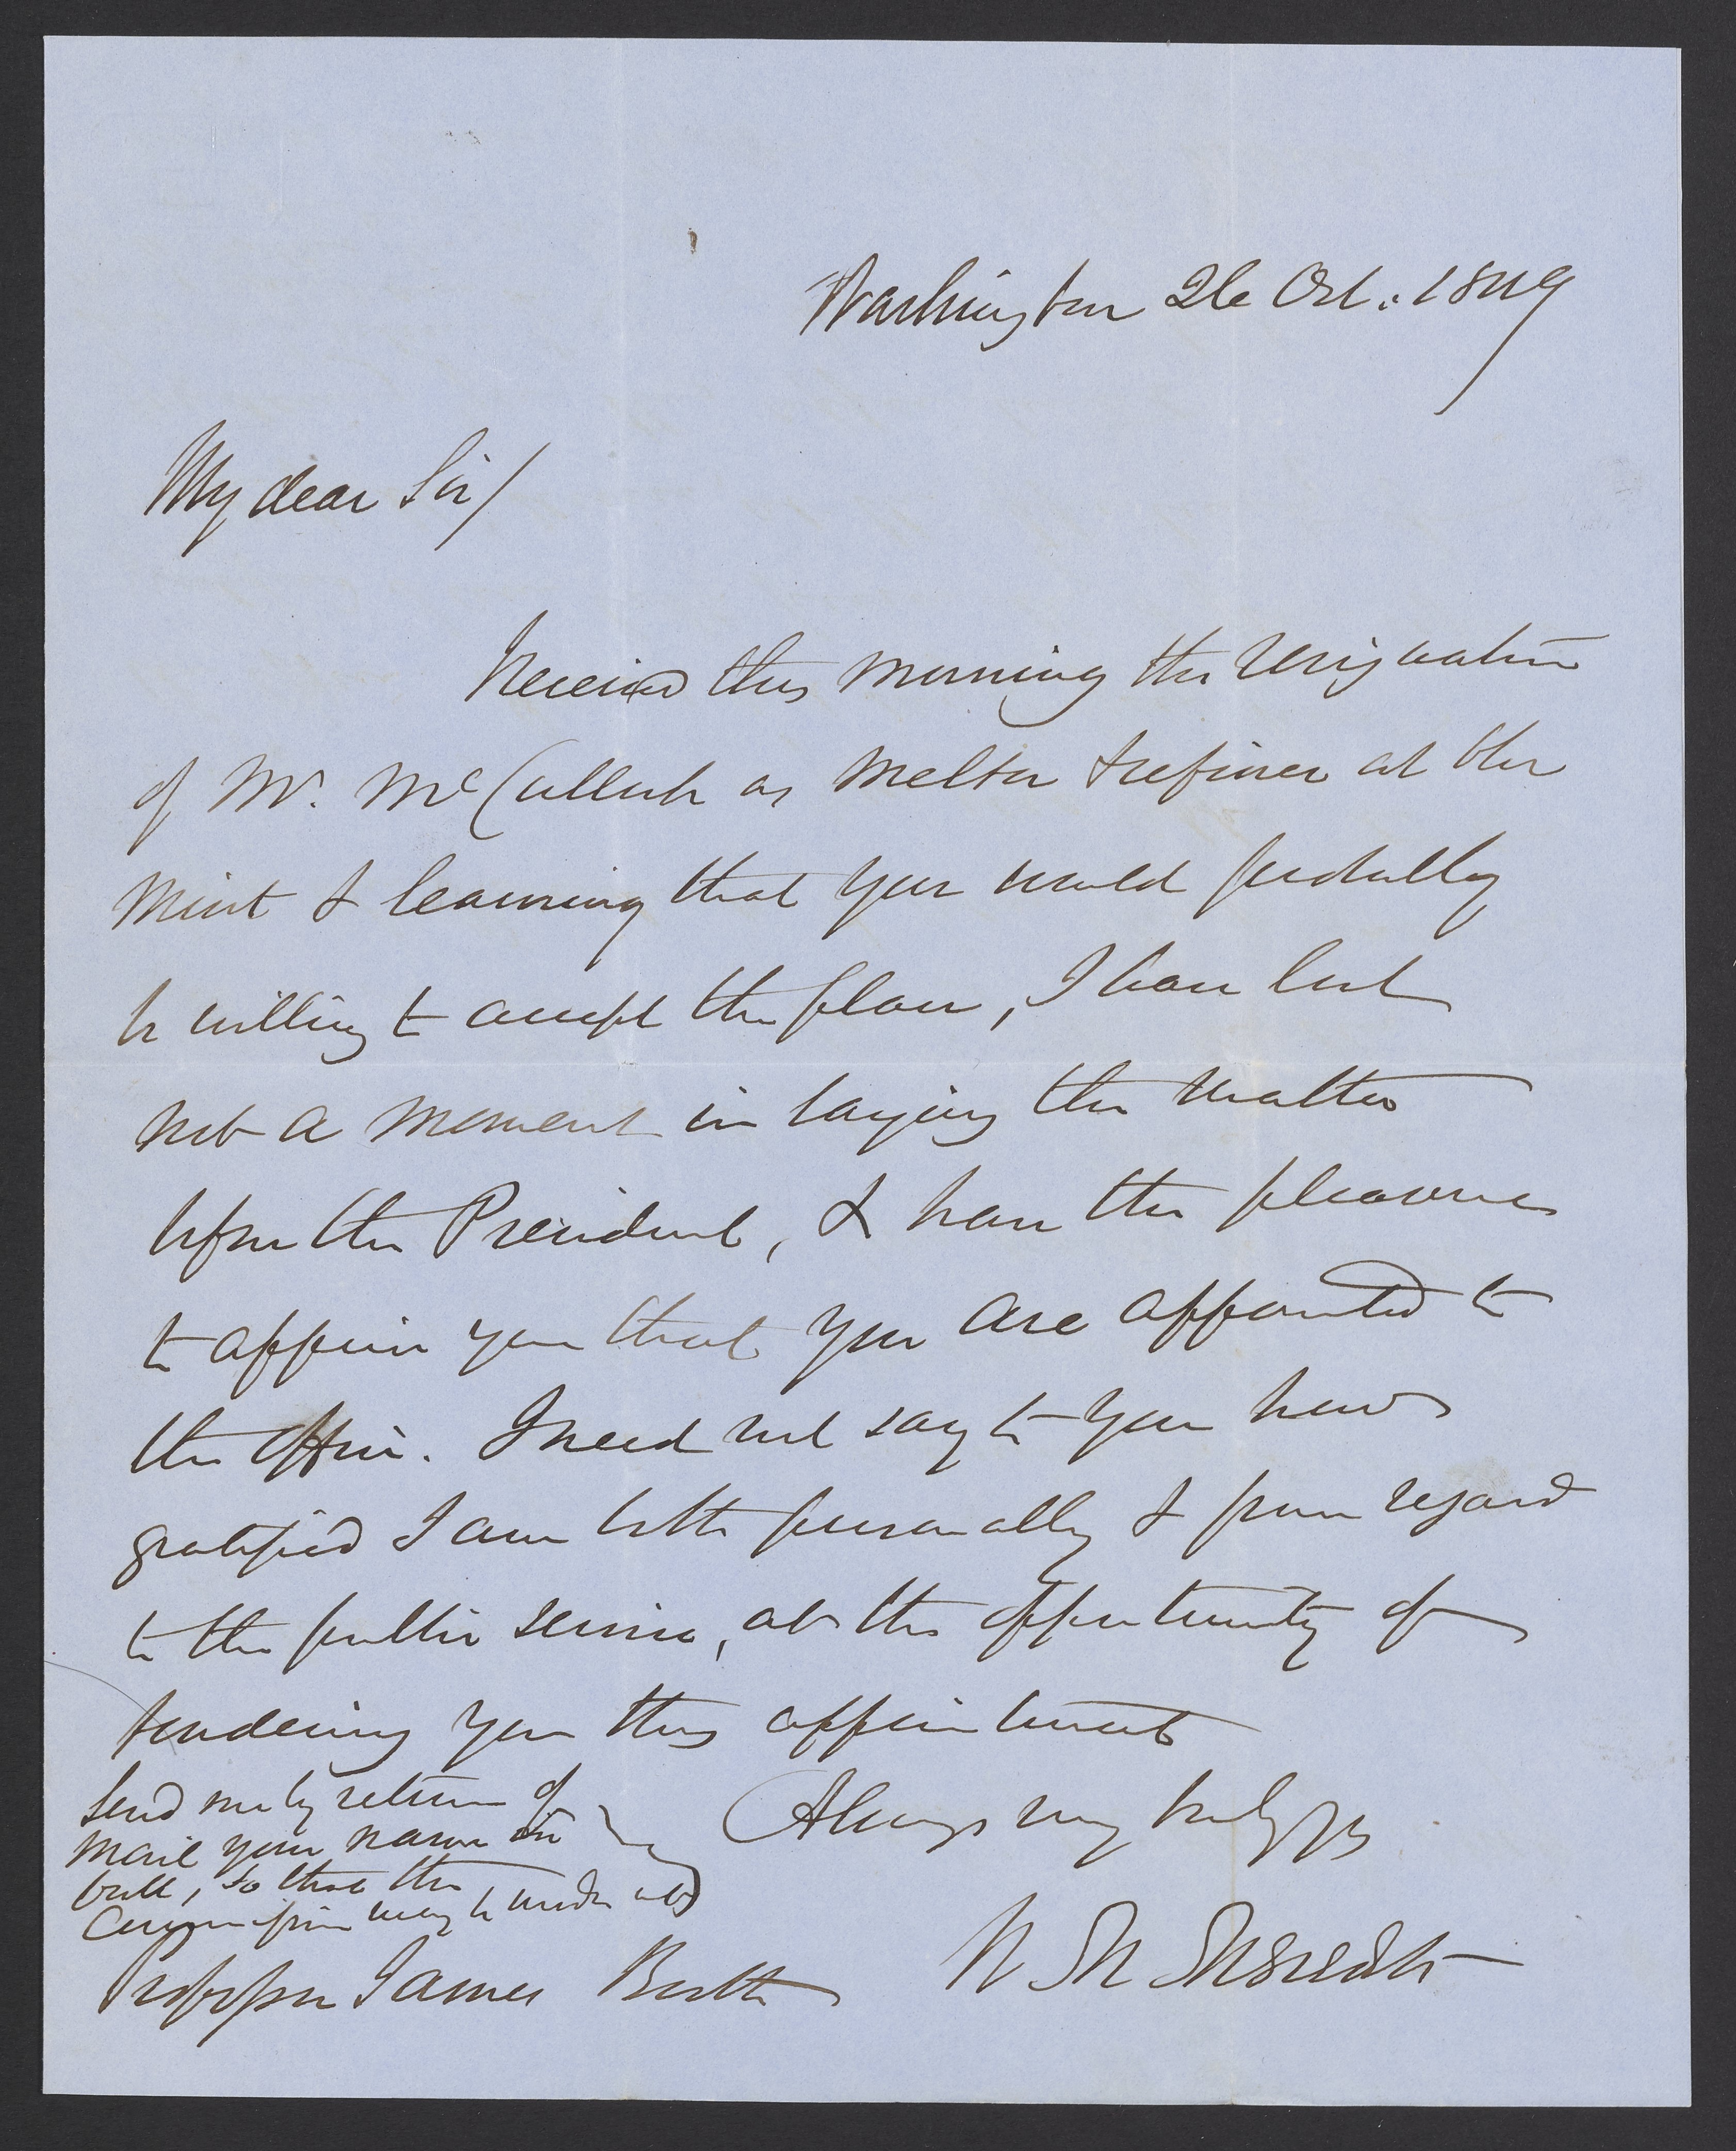 Washington 26 Oct: 1849
My dear Sir/
Received this morning the resignation
of Mr. McCulloh as Melter & refiner at the
Mint & learning that you would probably
be willing to accept the place, I have lost
not a moment in laying the matter
before the President, & have the pleasure
to appoin you that you are appointed to
the office. I need not say to you how
gratified I am both personally & from regard
to the public service, at the opportunity of
tendering you this appointment
Send me by return of
mail your name in
full, so that the
Commission may be made out
Always very truly yrs
W M Meredith
Professor James Booth